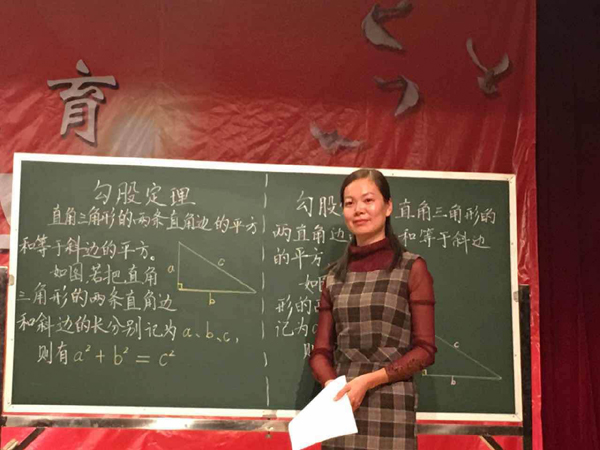 育
勾股定理
直角三角形的两条直角边的平方
和等于斜边的平方。
如图若把直角
三角形的两条直角边
和斜边的长分别记为a、b、c,
则有a²+b²=c²
a
c
b
勾股
直角三角形的
两直角边
和等于斜边
的平方
如
形的
记为
b